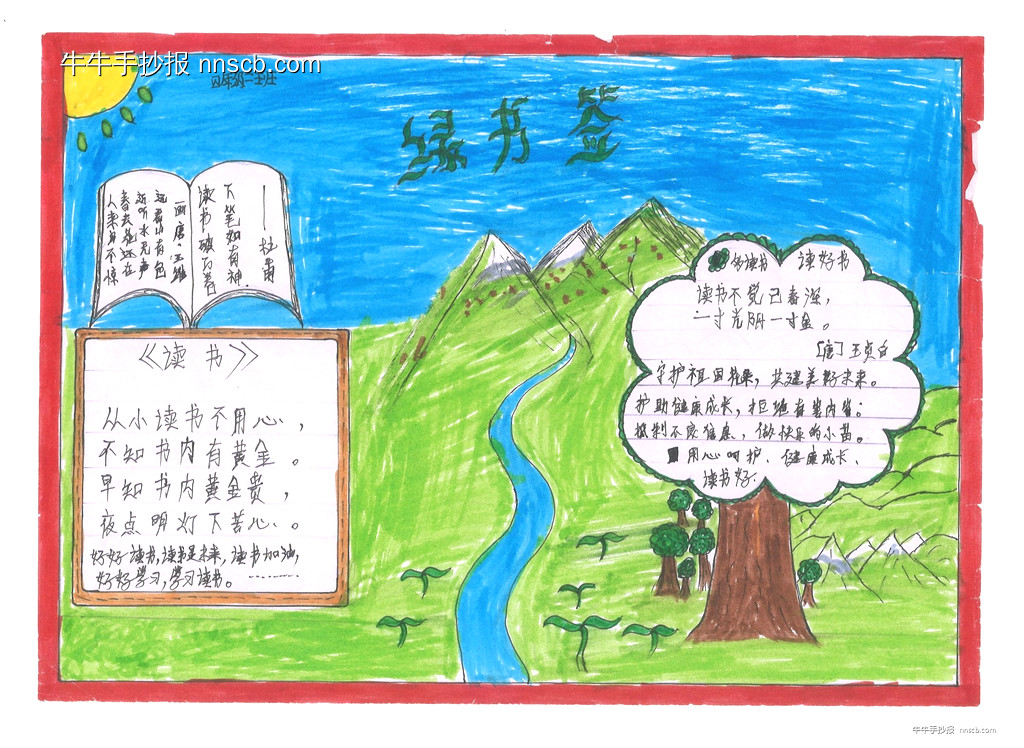 牛牛手抄报 nnscb.com
四年级二班
绿书签
——杜甫
下笔如有神.
读书破万卷
画 唐·王维
远看山有色
近听水无声
春去花还在
人来鸟不惊
《读 书》
从小读书不用心，
不知书内有黄金。
早知书内黄金贵，
夜点明灯下苦心。
好好读书,读书是未来,读书加油,
好好学习,学习读书。 ………
多读书 读好书
读书不觉已春深，
一寸光阴一寸金。
[唐] 王贞白
守护祖国花朵，共建美好未来。
护助健康成长，拒绝有害内容；
抵制不良信息、做快乐的小苗。
用心呵护、健康成长、
读书好.
牛牛手抄报 nnscb.com